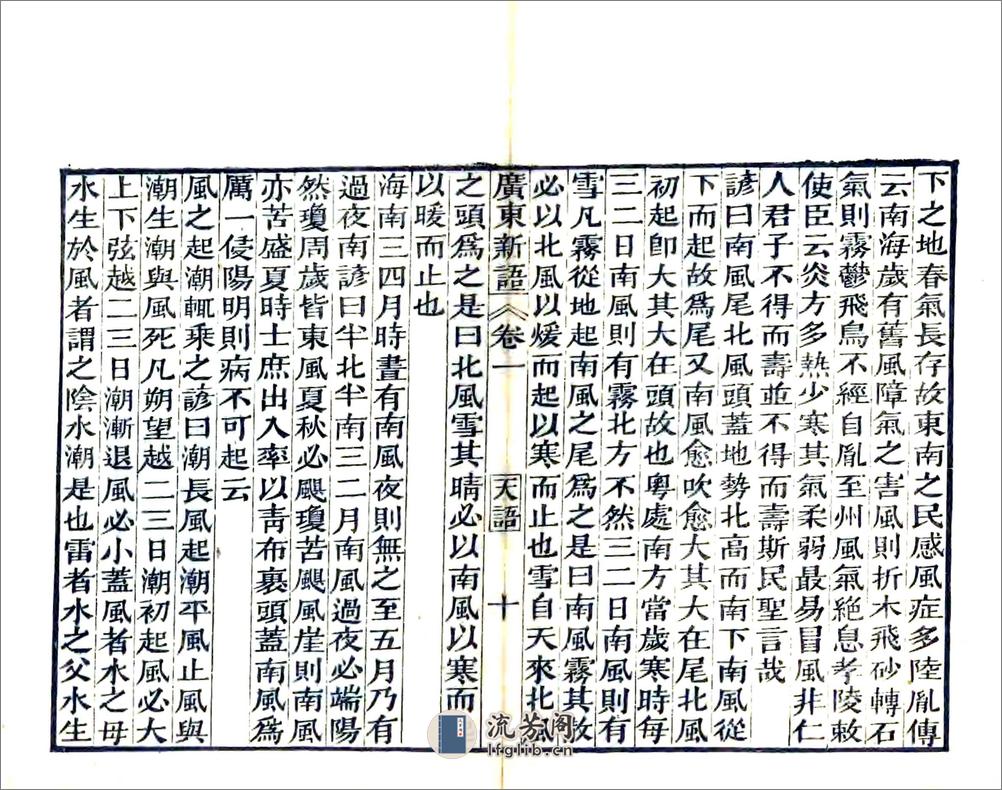 下之地春氣長存故東南之民感風症多陸胤傳
云南海歲有舊風障氣之害風則折木飛砂轉石
氣則霧鬱飛鳥不經自胤至州風氣絕息孝陵敕
使臣云炎方多熱少寒其氣柔弱最易冒風非仁
人君子不得而壽並不得而壽斯民聖言哉
諺曰南風尾北風頭蓋地勢北高而南下南風從
下而起故爲尾又南風愈吹愈大其大在尾北風
初起卽大其大在頭故也粵處南方當歲寒時每
三二日南風則有霧北方不然三二日南風則有
雪凡霧從地起南風之尾爲之是曰南風霧其散
必以北風以煖而起以寒而止也雪自天來北風
廣東新語 卷一 天語 十
之頭爲之是曰北風雪其晴必以南風以寒而
以暖而止也
海南三四月時晝有南風夜則無之至五月乃有
過夜南諺曰半北半南三二月南風過夜必端陽
然瓊周歲皆東風夏秋必颶瓊苦颶風崖則南風
亦苦盛夏時士庶出入率以靑布裹頭蓋南風爲
厲一侵陽明則病不可起云
風之起潮輒乘之諺曰潮長風起潮平風止風與
潮生潮與風死凡朔望越二三日潮初起風必大
上下弦越二三日潮漸退風必小蓋風者水之母
水生於風者謂之陰水潮是也雷者水之父水生
流芳阁
lfglib.cn